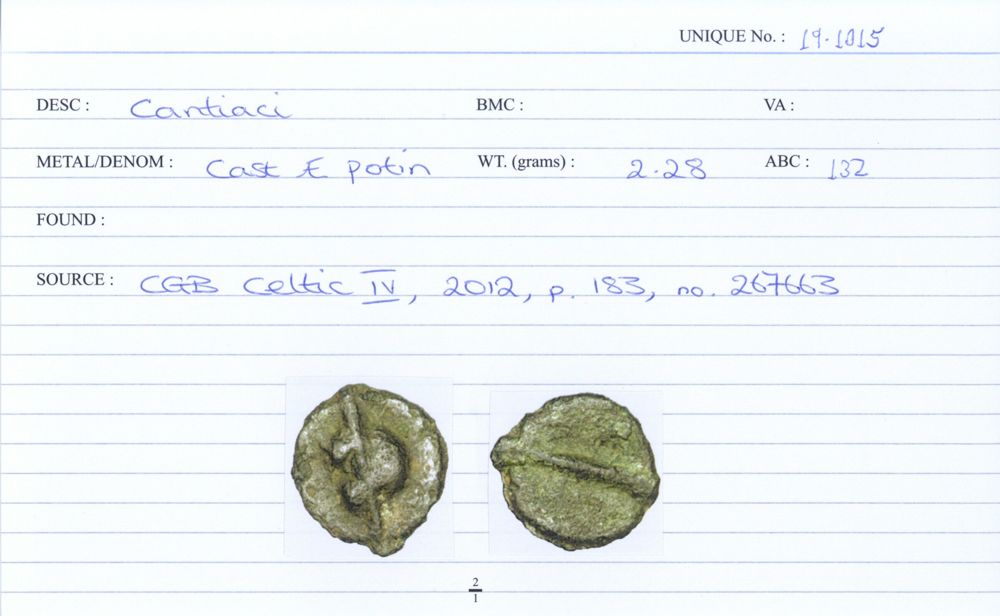 UNIQUE No. : 19.1015
DESC : Cantiaci BMC : VA :
METAL/DENOM : Cast Æ potin WT. (grams) : 2.28 ABC : 132
FOUND :
SOURCE : CGB Celtic IV, 2012, p. 183, no. 267663
2
1